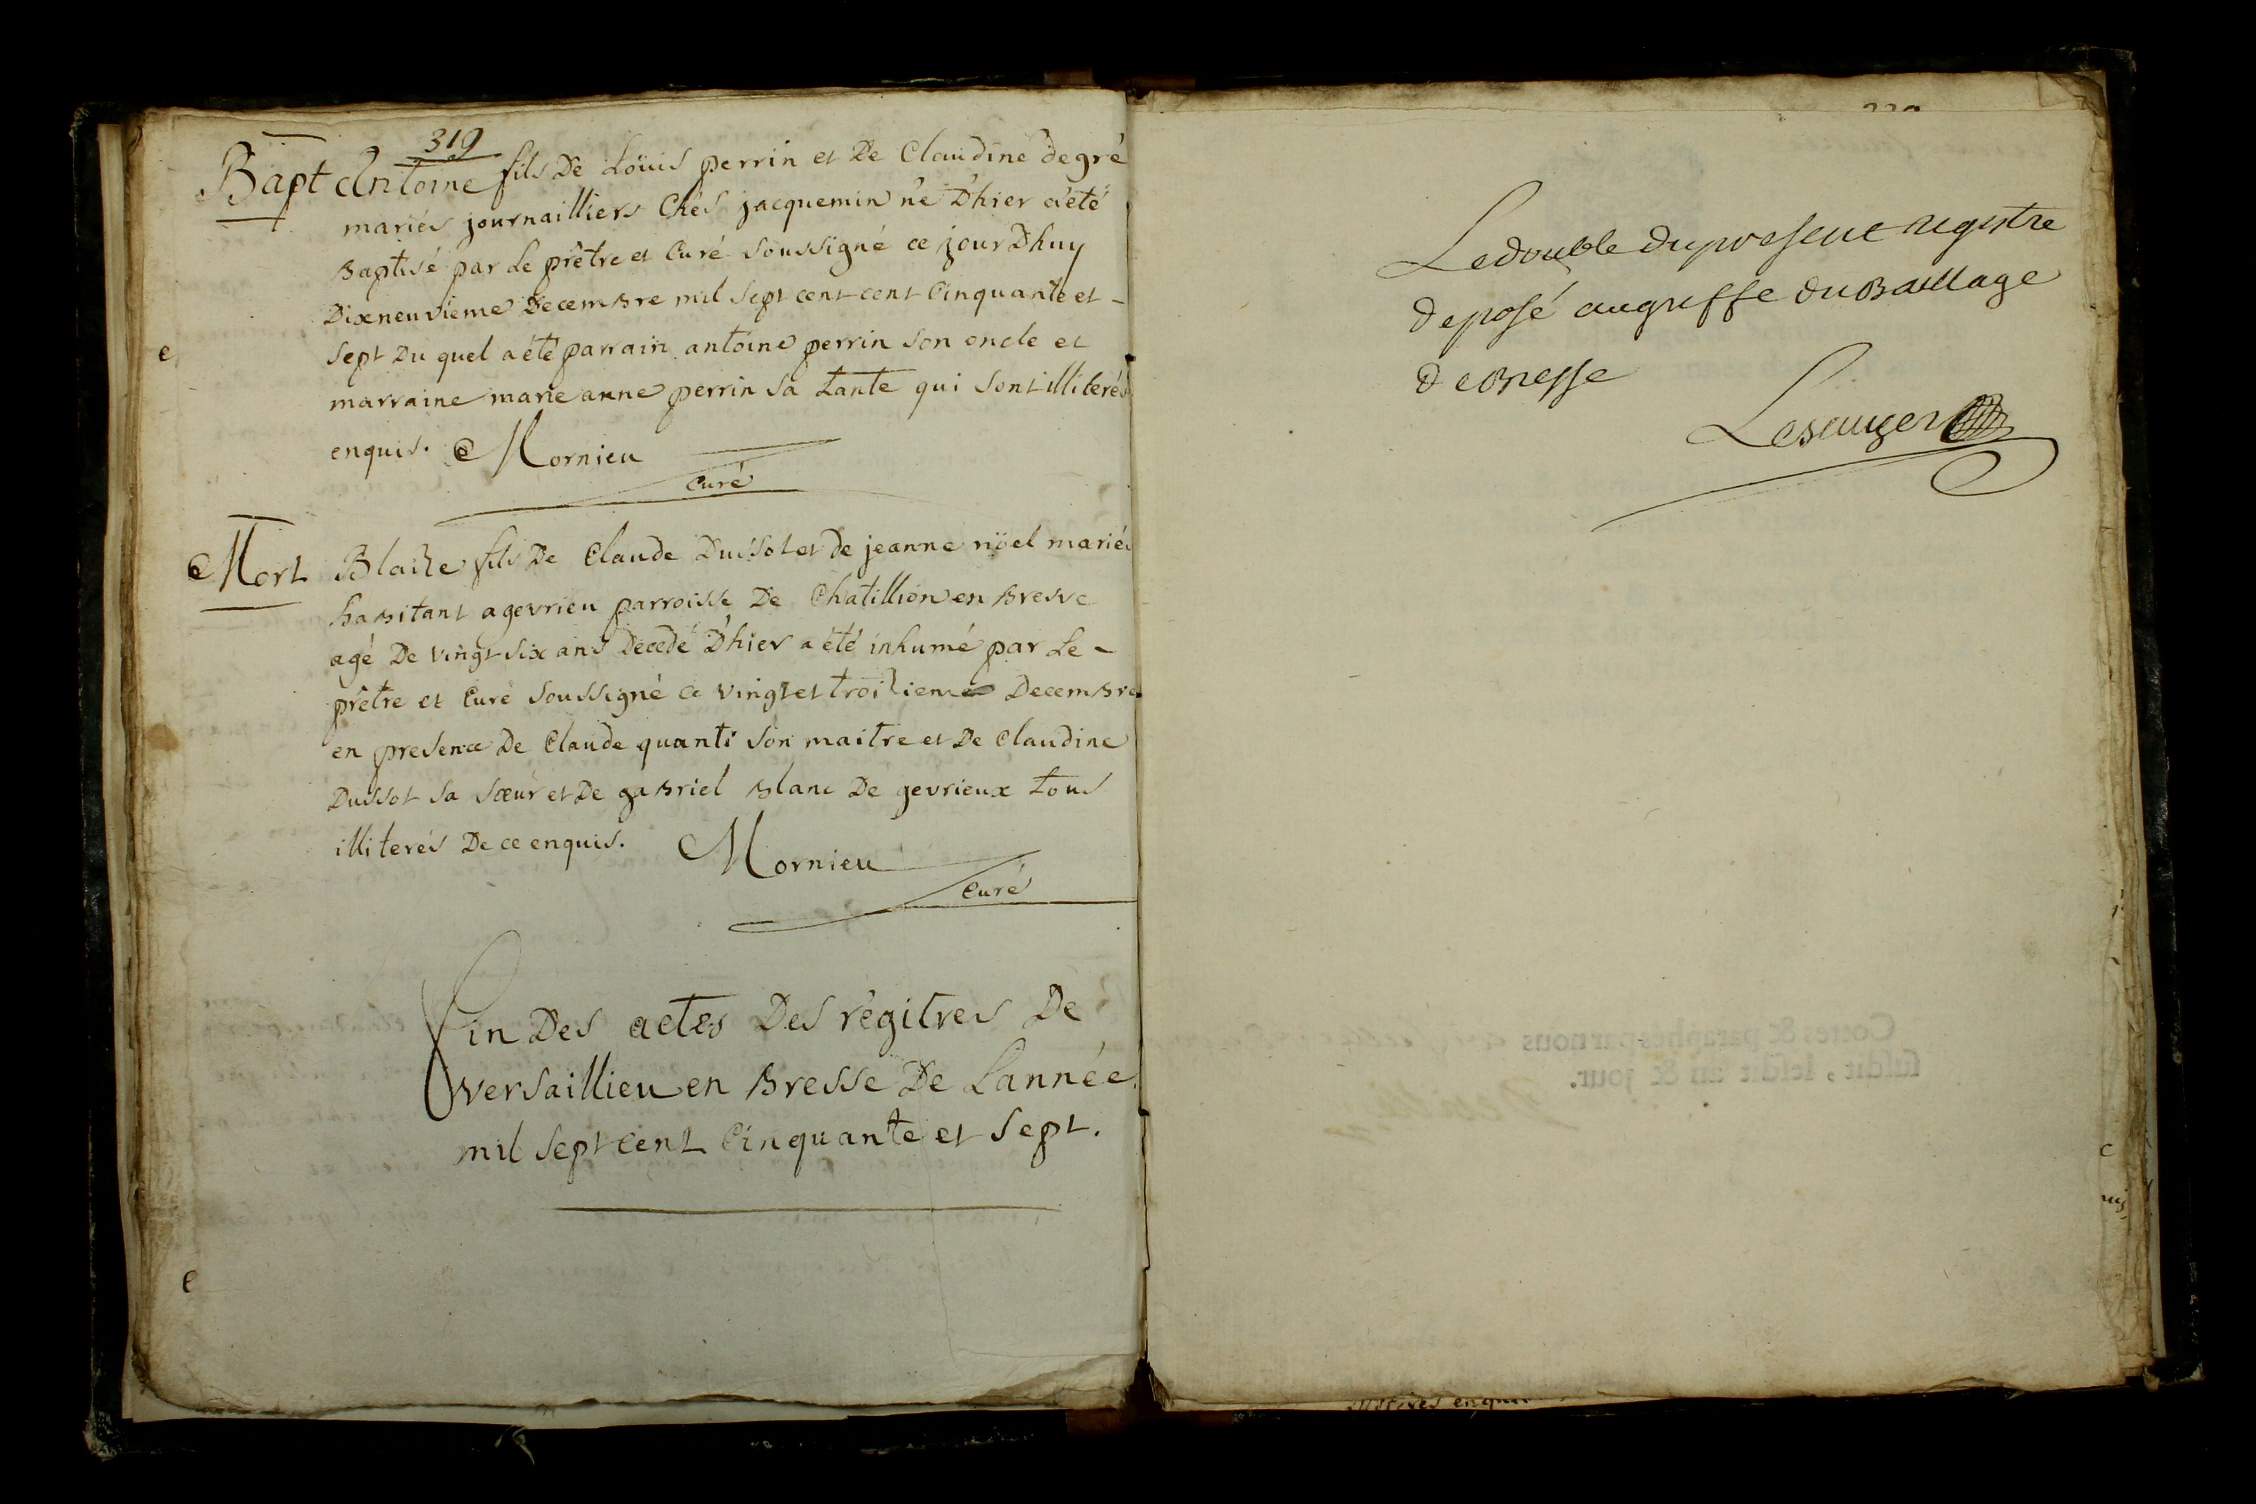 319
Bapt Antoine fils De Loüis perrin et De Claudine degré
mariés journailliers Chés jacquemin né D'hier a été
Baptisé par Le prêtre et Curé soussigné ce jourDhuy
Dixneuvieme Decembre mil sept cent cent Cinquante et -
sept Du quel a été parrain antoine perrin son oncle et
marraine marie anne perrin sa tante qui sont illiterés
enquis. Mornieu
Curé
Mort Blaize fils De Claude Dussot et de jeanne nöel mariés
habitant a gevrieu parroisse De Chatillion en Bresse
agé De vingt six ans Decedé D'hier a été inhumé par Le -
prêtre et Curé soussigné ce vingt et troizieme Decembre
en presence De Claude quanti son maitre et De Claudine
Dussot sa sœur et De gabriel Blanc De gevrieux tous
illiterés De ce enquis. Mornieu
Curé
Fin Des actes Des régitres De
versaillieu en Bresse De Lannée
mil sept cent Cinquante et sept.
Le double du present registre
deposé au greffe du Baillage
de Bresse